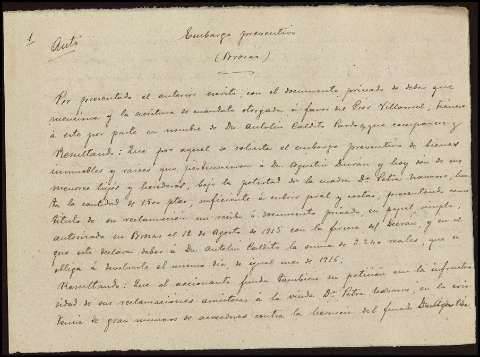 1
Auto
Embargo preventivo
(Brozas)
Por presentado el anterior escrito, con el documento privado de deber que
menciona y la escritura de mandato otorgada á favor de Villarroel,
á este por parte en nombre de Dn Antolín que comparece, y
Resultando: Que por aquel se solicita el embargo preventivo de bienes
inmuebles y raíces que pertenecieron á Dn Agustín Durán y hoy son de sus
menores hijos y herederos, bajo la potestad de la madre Dª Petra Navarro, has
ta la cantidad de 1500 ptas, suficiente á cubrir pral y costas, presentando como
título de su reclamación un recibo ó documento privado, en papel simple,
autorizado en Brozas el 12 de Agosto de 1915 con la firma A. Durán, y en el
que este declara deber á Dn Antolín la suma de 2.240 reales, que se
obliga á devolverla el mismo día, de igual mes de 1916.
Resultando: Que el accionante funda también su petición en la infructuo
sidad de sus reclamaciones amistosas á la viuda Dª Petra Navarro, en la exis
tencia de gran número de acreedores contra la herencia del finado